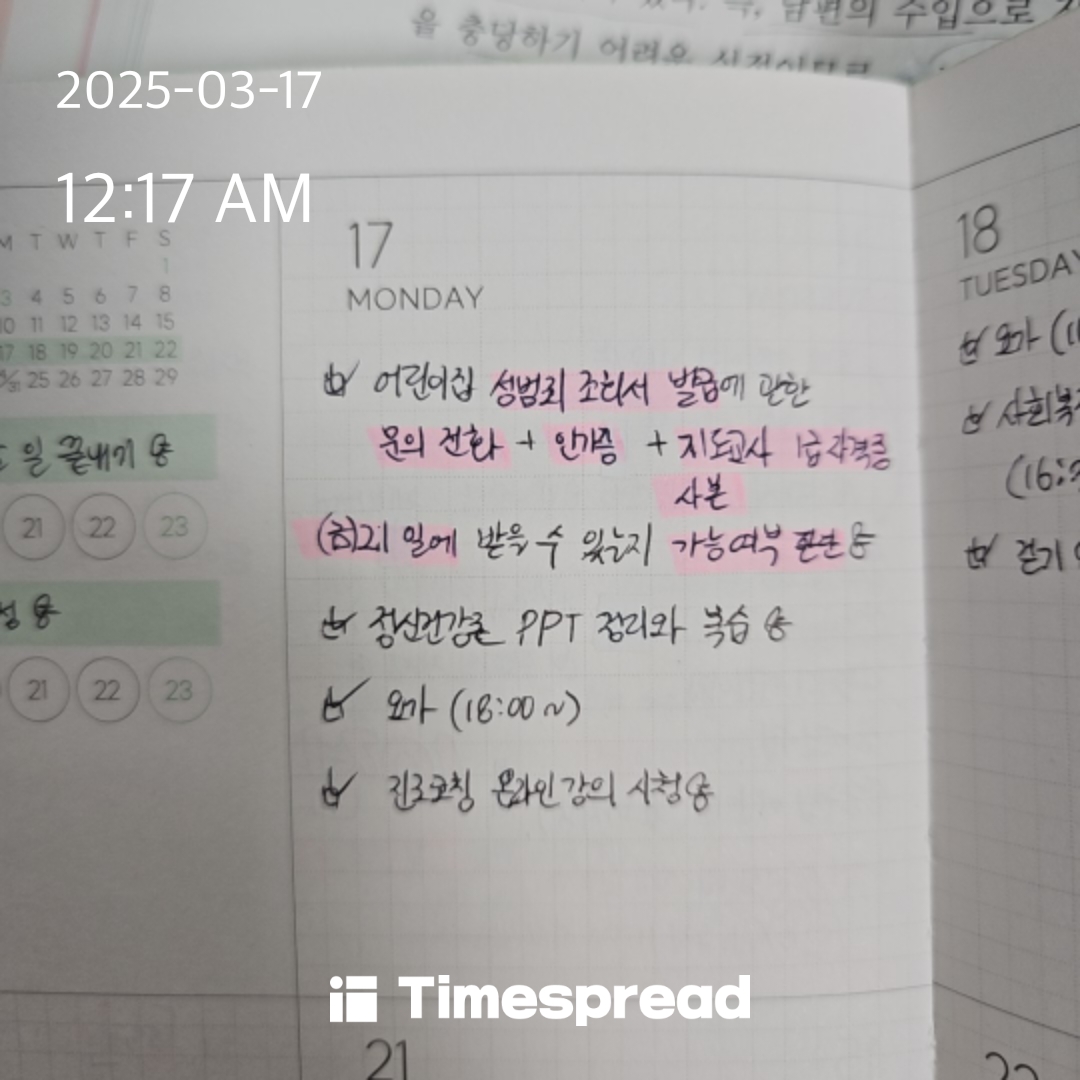 을 충당하기 어려운
남편의 수입으로
2025-03-17
12:17 AM
M T W T F S
1
3 4 5 6 7 8
10 11 12 13 14 15
17 18 19 20 21 22
25 26 27 28 29
일 끝내기 용
21 22 23
성 용
21 22 23
17
MONDAY
어린이집 성범죄 조회서 발급에 관한
문의 전화 + 인가증 + 지도교사 1급 자격증
사본
21일에 받을 수 있는지 가능여부 판단 용
정신건강론 PPT 정리와 복습 용
요가 (18:00~)
진로코칭 온라인 강의 시청 용
18
TUESDAY
요가 (1
사회복
(16:
걷기
Timespread
21